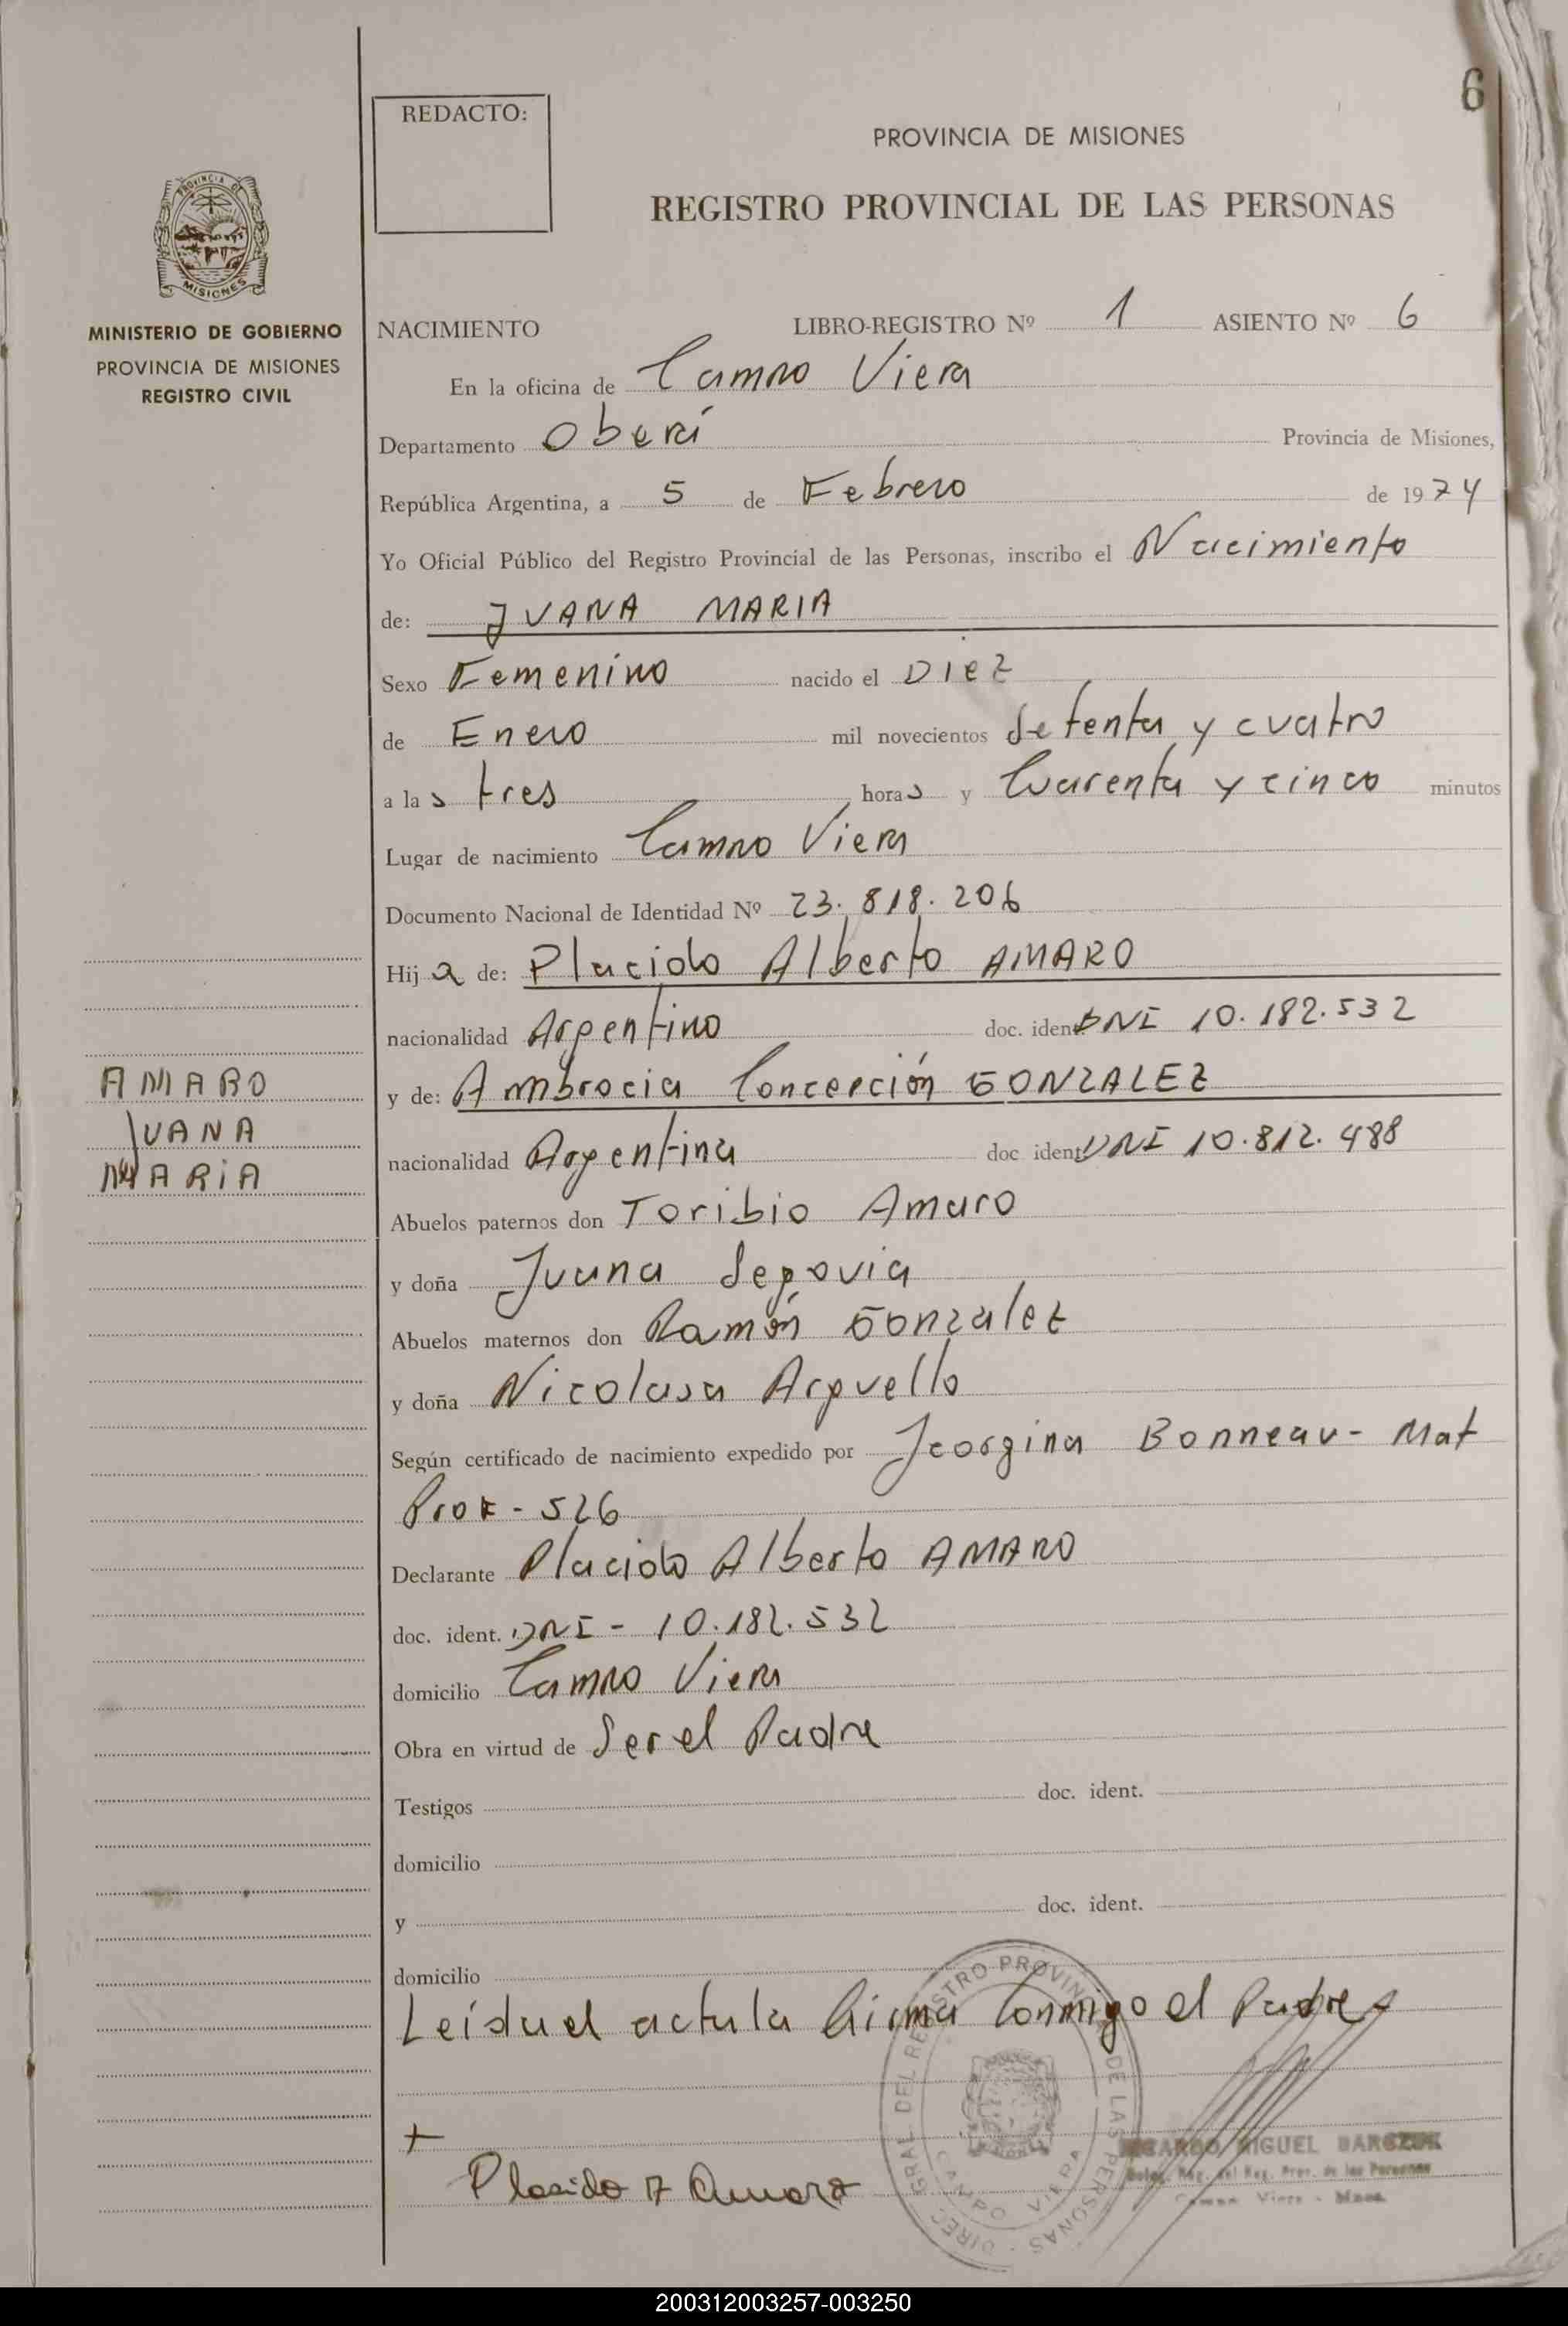 6
REDACTO:
PROVINCIA DE MISIONES
REGISTRO PROVINCIAL DE LAS PERSONAS
PROVINCIA DE
MISIONES
MINISTERIO DE GOBIERNO
PROVINCIA DE MISIONES
REGISTRO CIVIL
NACIMIENTO LIBRO-REGISTRO Nº 1 ASIENTO Nº 6
En la oficina de Campo Viera
Departamento Oberá Provincia de Misiones,
República Argentina, a 5 de Febrero de 1974
Yo Oficial Público del Registro Provincial de las Personas, inscribo el Nacimiento
de: JUANA MARIA
Sexo Femenino nacido el Diez
de Enero mil novecientos setenta y cuatro
a las tres horas y Cuarenta y cinco minutos
Lugar de nacimiento Campo Viera
Documento Nacional de Identidad Nº 23.818.206
Hija de: Placido Alberto AMARO
nacionalidad Argentino doc. ident. DNI 10.182.532
y de: Ambrocia Concepción GONZALEZ
nacionalidad Argentina doc ident. DNI 10.812.488
AMARO
JUANA
MARiA
Abuelos paternos don Toribio Amaro
y doña Juana Segovia
Abuelos maternos don Ramón Gonzalez
y doña Nicolasa Arguello
Según certificado de nacimiento expedido por Jeorgina Bonneau - Mat
Prof - 526
Declarante Placido Alberto AMARO
doc. ident. DNI - 10.182.532
domicilio Campo Viera
Obra en virtud de Ser el Padre
Testigos doc. ident.
domicilio
y doc. ident.
domicilio
Leída el acta la firma Conmigo el Padre
DIREC. GRAL DEL REGISTRO PROVINC. DE LAS PERSONAS
CAMPO VIERA
MIGUEL
Deleg. Reg. del Reg. Prov. de las Personas
Campo Viera - Mnes.
+
Placido A Amaro
200312003257-003250